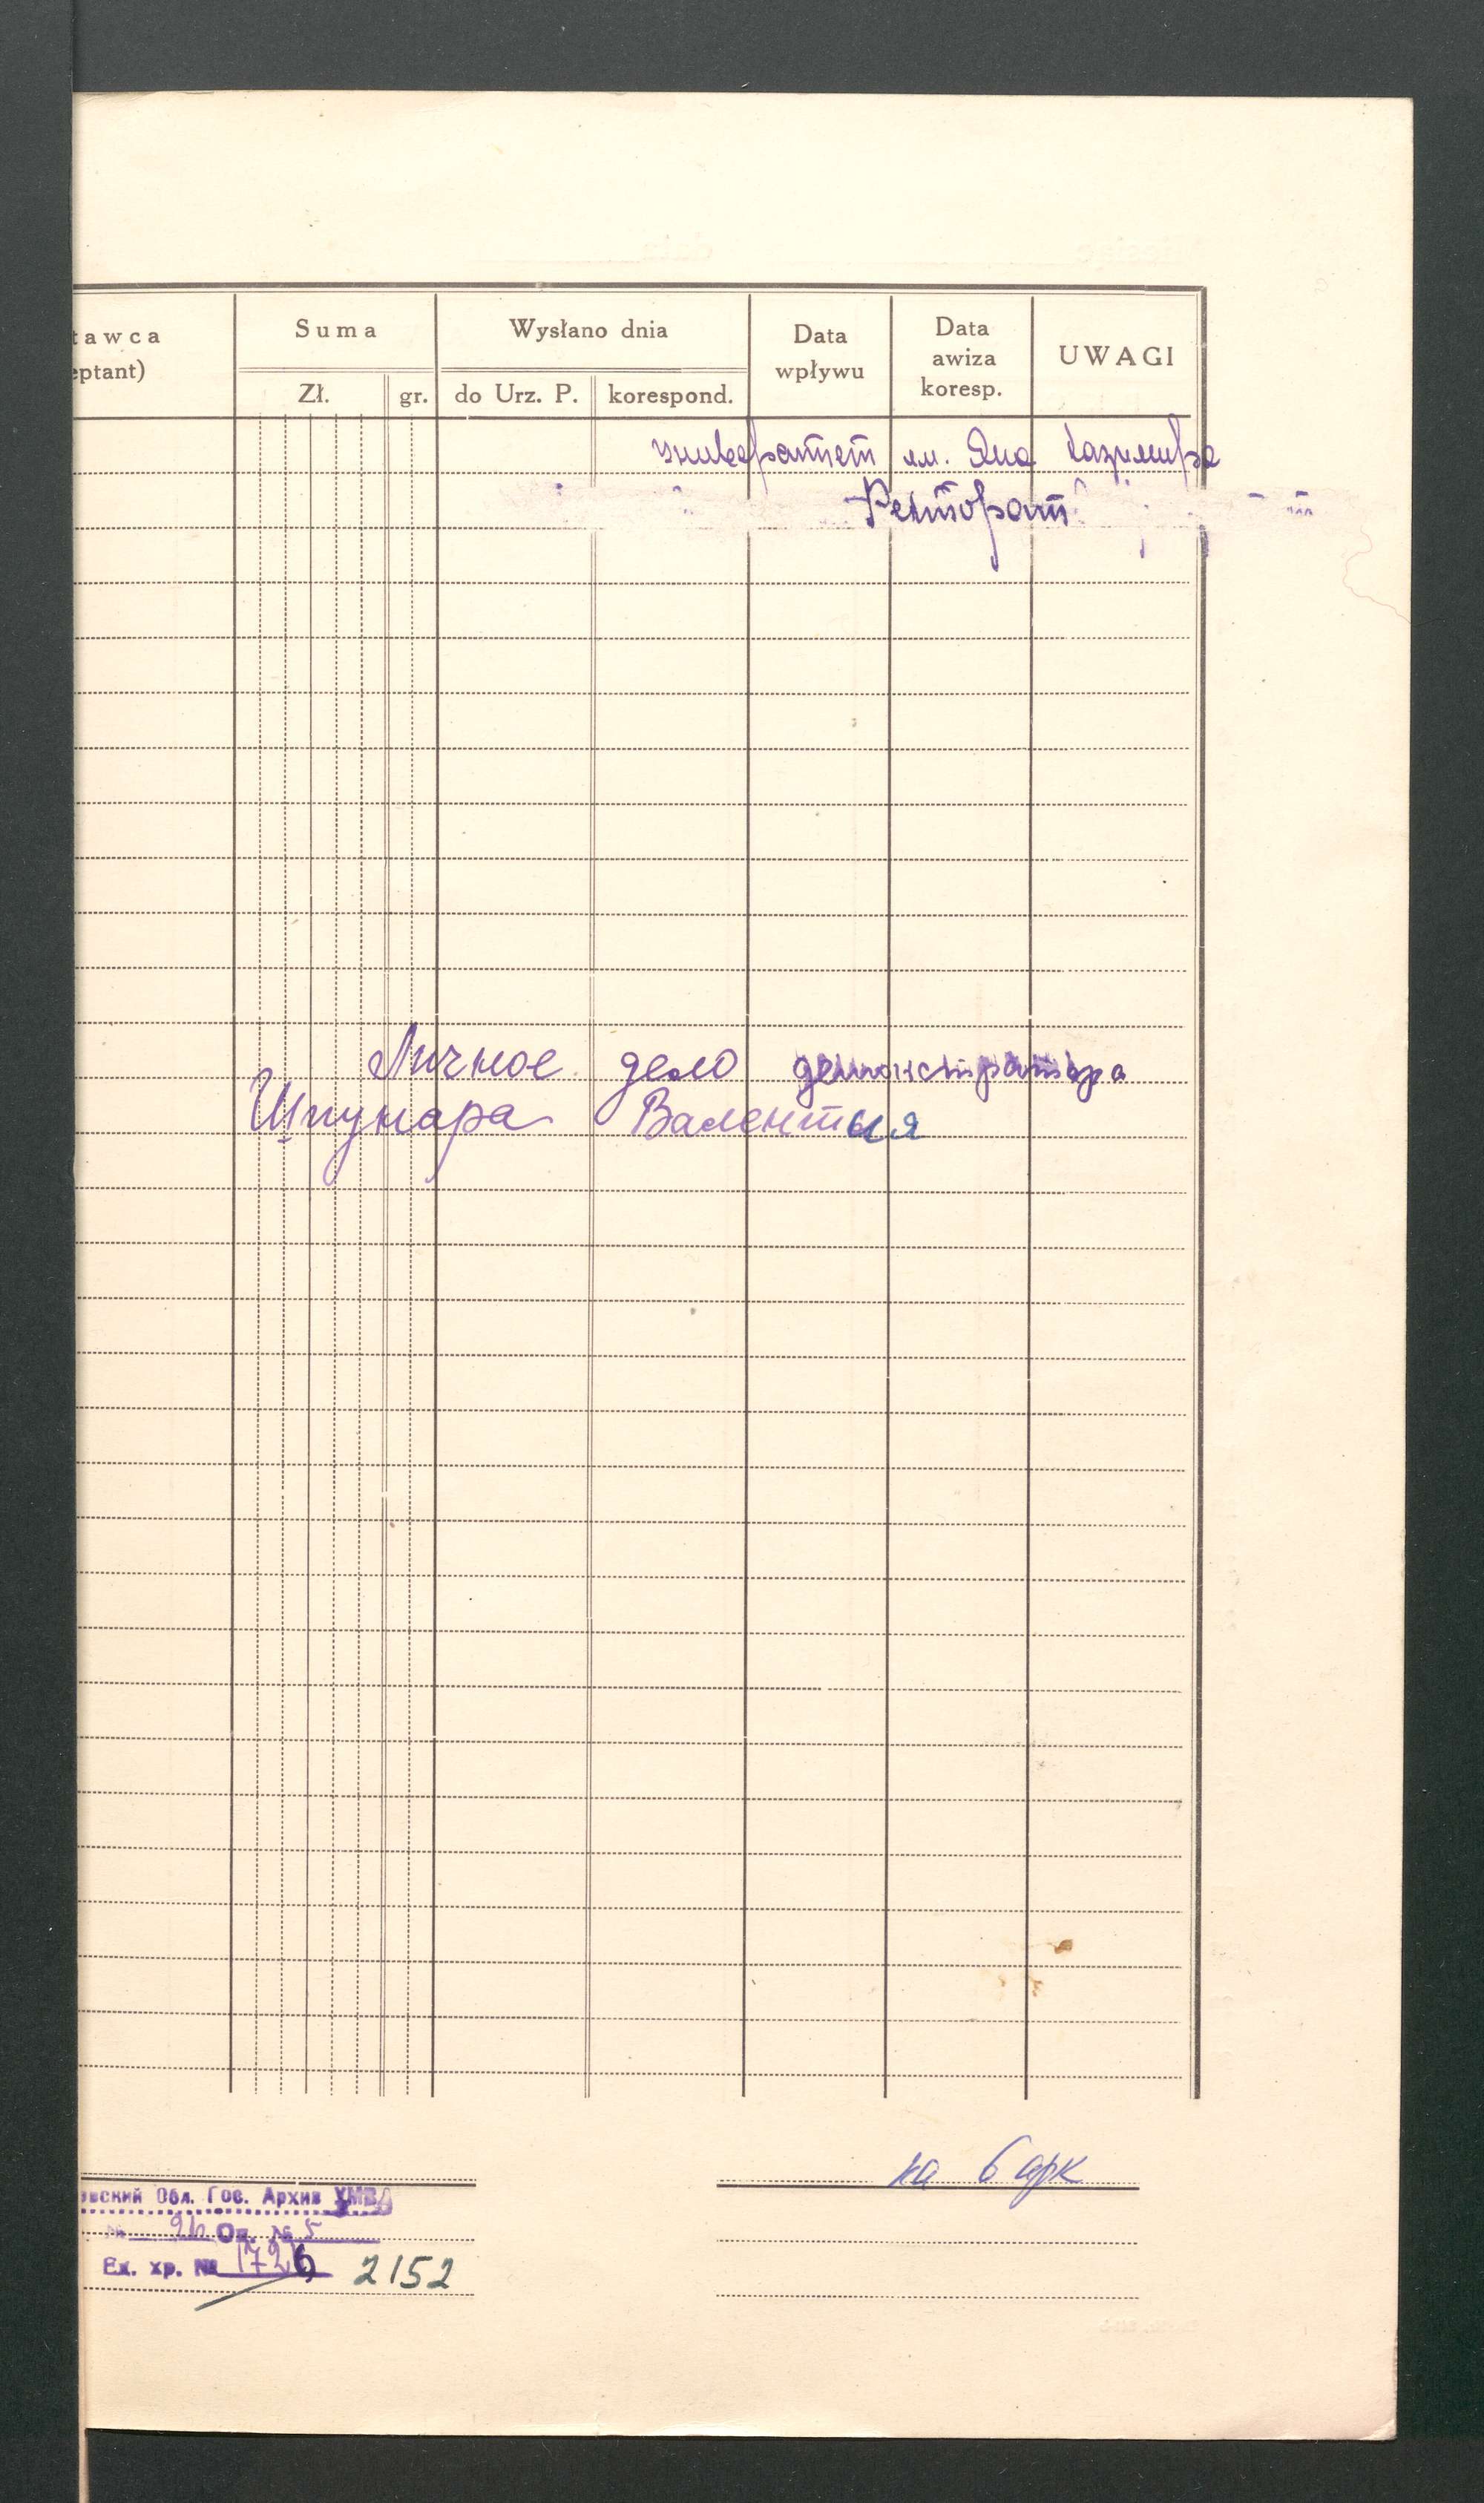 tawca Suma Wysłano dnia Data wpływu Data awiza koresp. UWAGI
eptant) Zł. gr. do Urz. P. korespond.
университет им. Яна Казимира
Ректорат
Личное дело демонстратора
Шпунара Валентия
на 6 арк
вский Обл. Гос. Архив УМВД
№ 26 Оп. № 5
Ед. хр. № 1726 2152